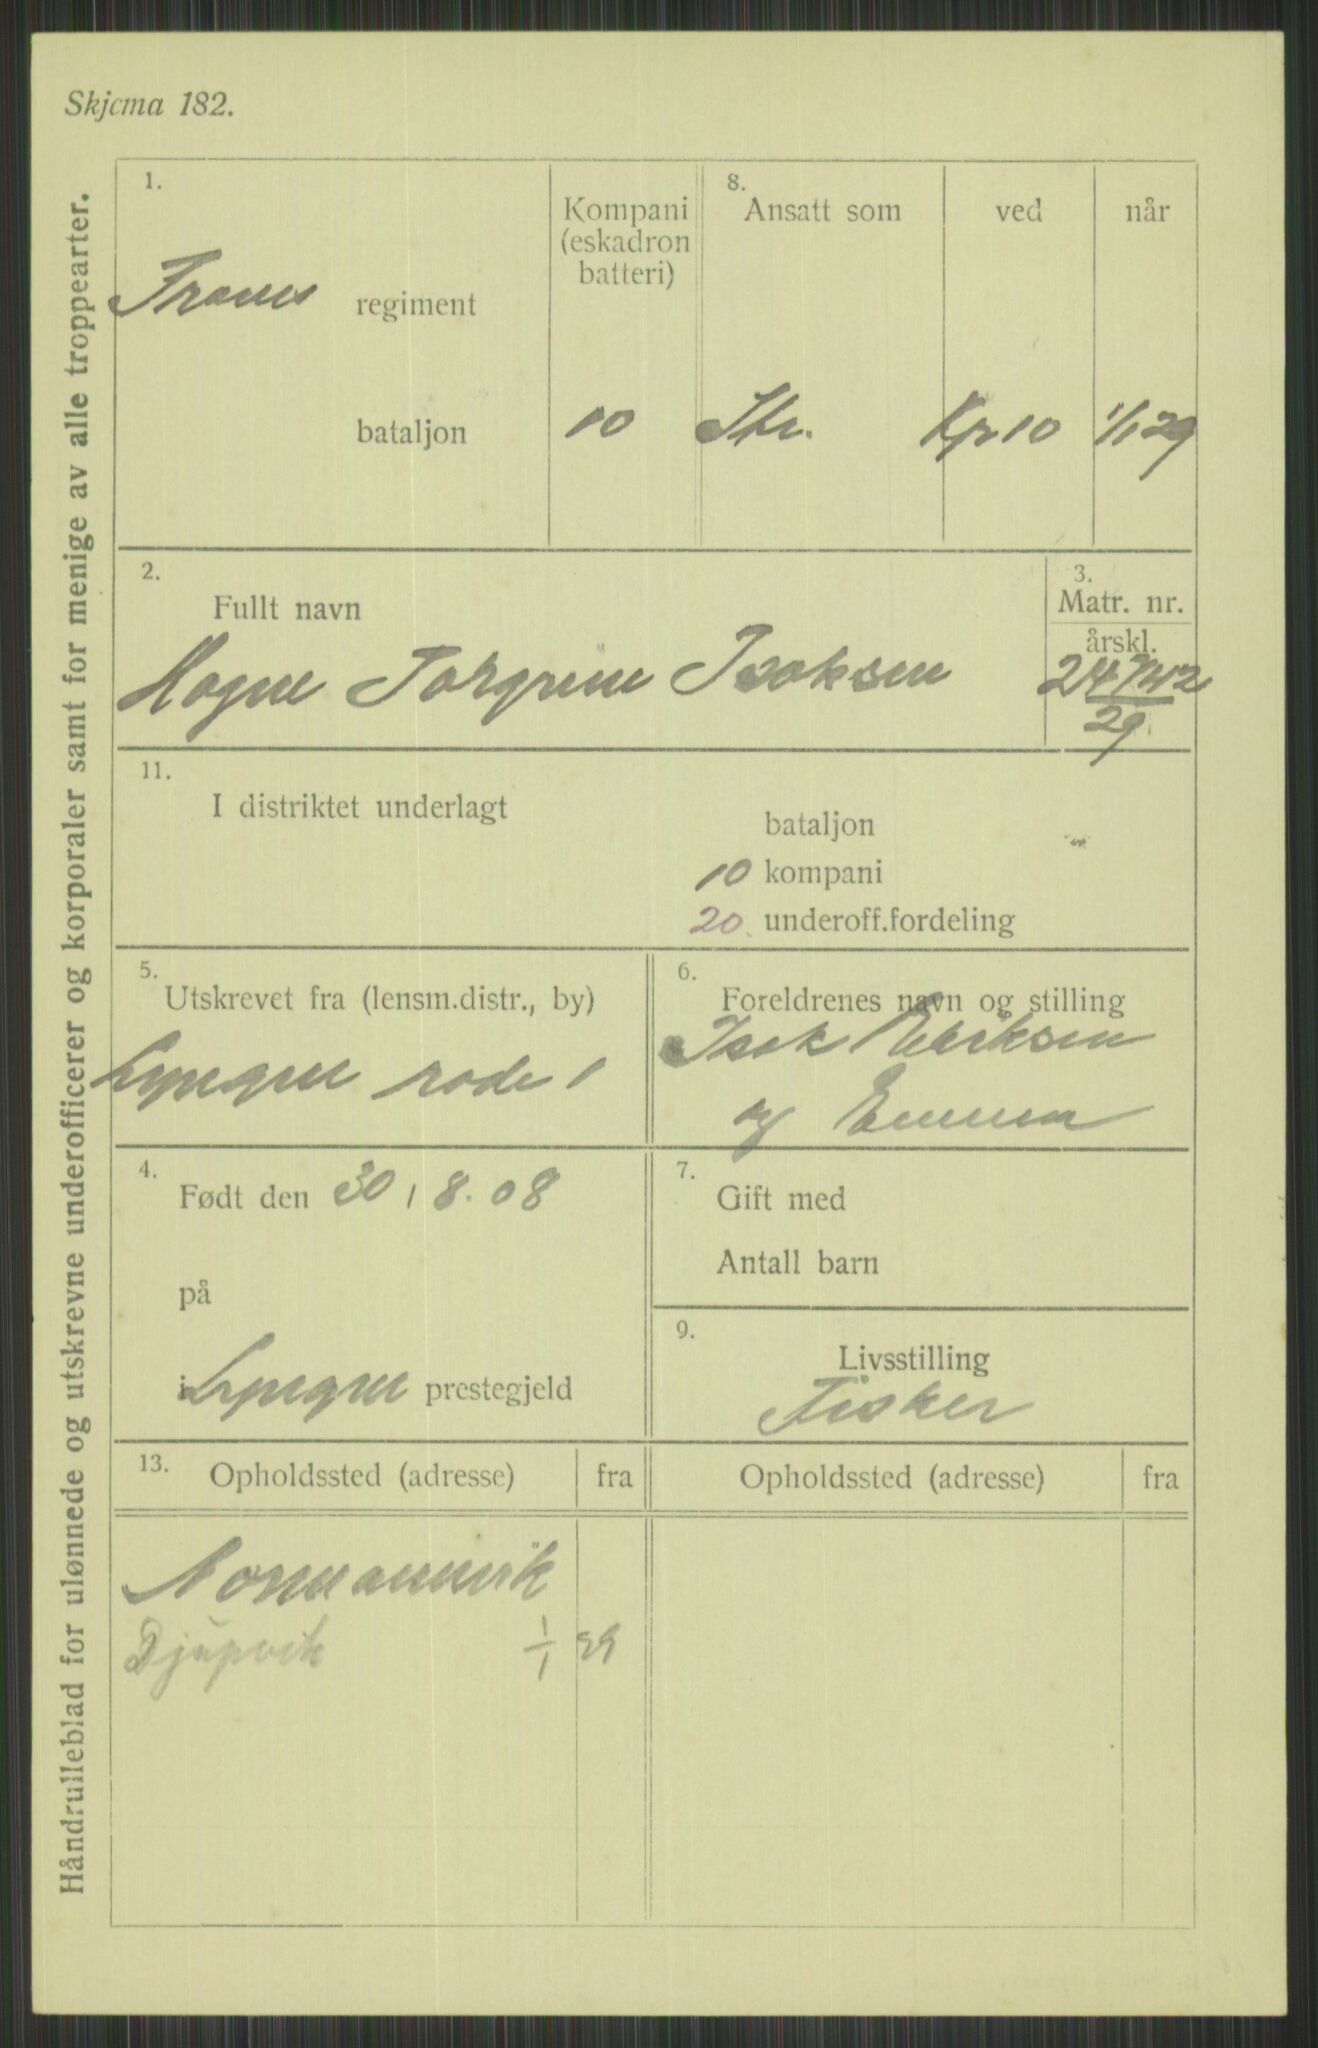 Skjema 182.
Håndrulleblad for ulønnede og utskrevne underofficerer og korporaler samt for menige av alle troppearter.
1.
Troms regiment
bataljon
Kompani
(eskadron
batteri)
10
8.
Ansatt som
ved
når
Str.
Kp 10
1/1 29
2.
Fullt navn
Hagne Torgrim Isaksen
3.
Matr. nr.
årskl.
29
11.
I distriktet underlagt
bataljon
10 kompani
20. underoff.fordeling
5.
Utskrevet fra (lensm.distr., by)
Lyngen rode 1
6.
Foreldrenes navn og stilling
Isak Eriksen
og Emma
4.
Født den 30 / 8. 08
på
i Lyngen prestegjeld
7.
Gift med
Antall barn
9.
Livsstilling
Fisker
13.
Opholdssted (adresse) fra
Opholdssted (adresse) fra
Normannvik
Djupvik 1/1 29